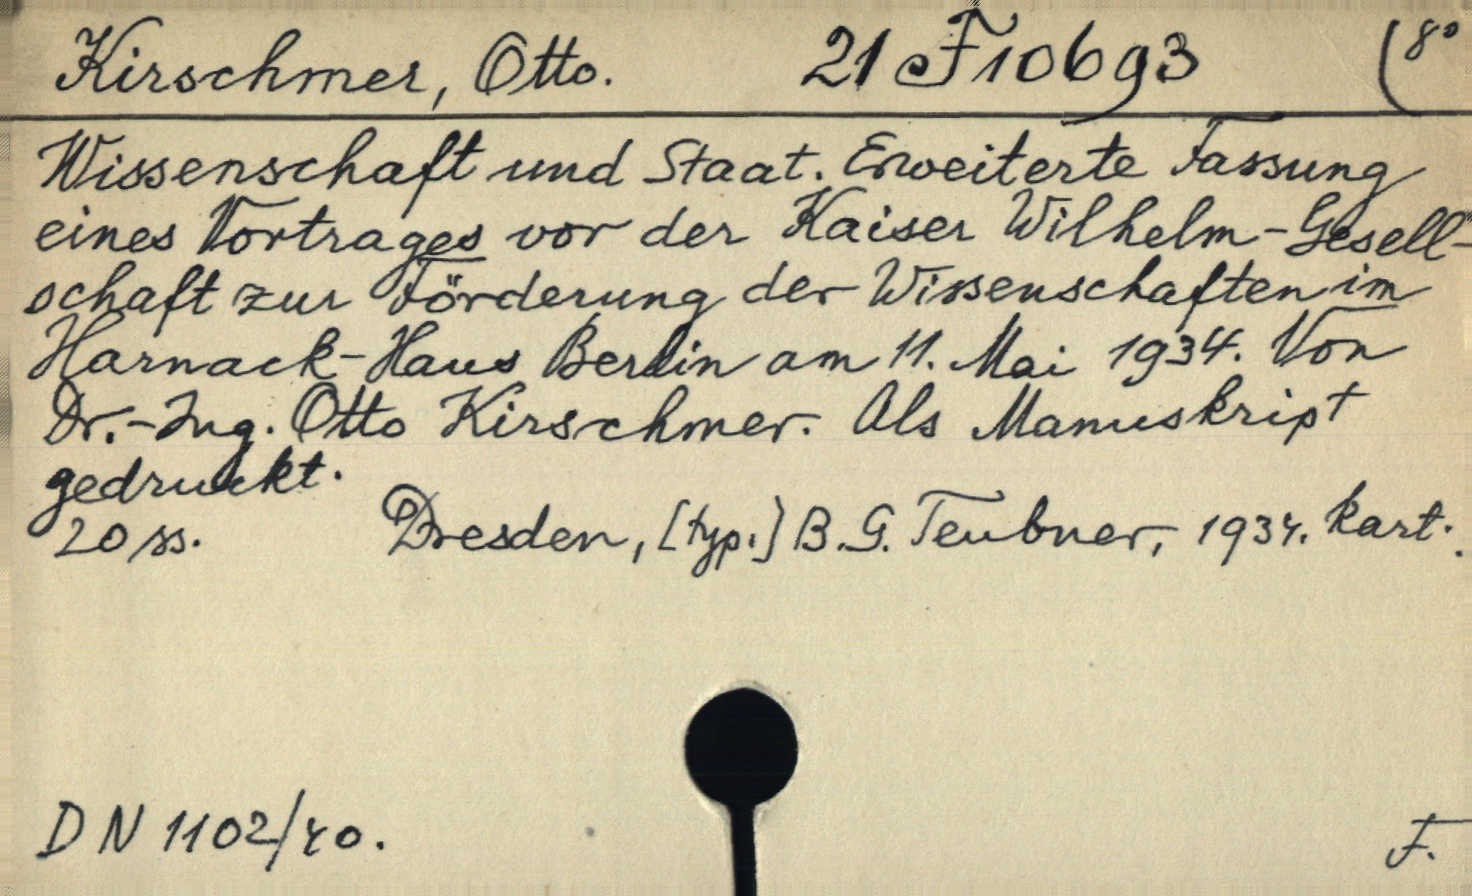 Kirschmer, Otto. 21 F 10693 (8°
Wissenschaft und Staat. Erweiterte Fassung
eines Vortrages vor der Kaiser Wilhelm-Gesell-
schaft zur Förderung der Wissenschaften im
Harnack-Haus Berlin am 11. Mai 1934. Von
Dr.-Ing. Otto Kirschmer. Als Manuskript
gedruckt.
20 ss. Dresden, [typ.] B. G. Teubner, 1934. kart.
D N 1102/40.
F.